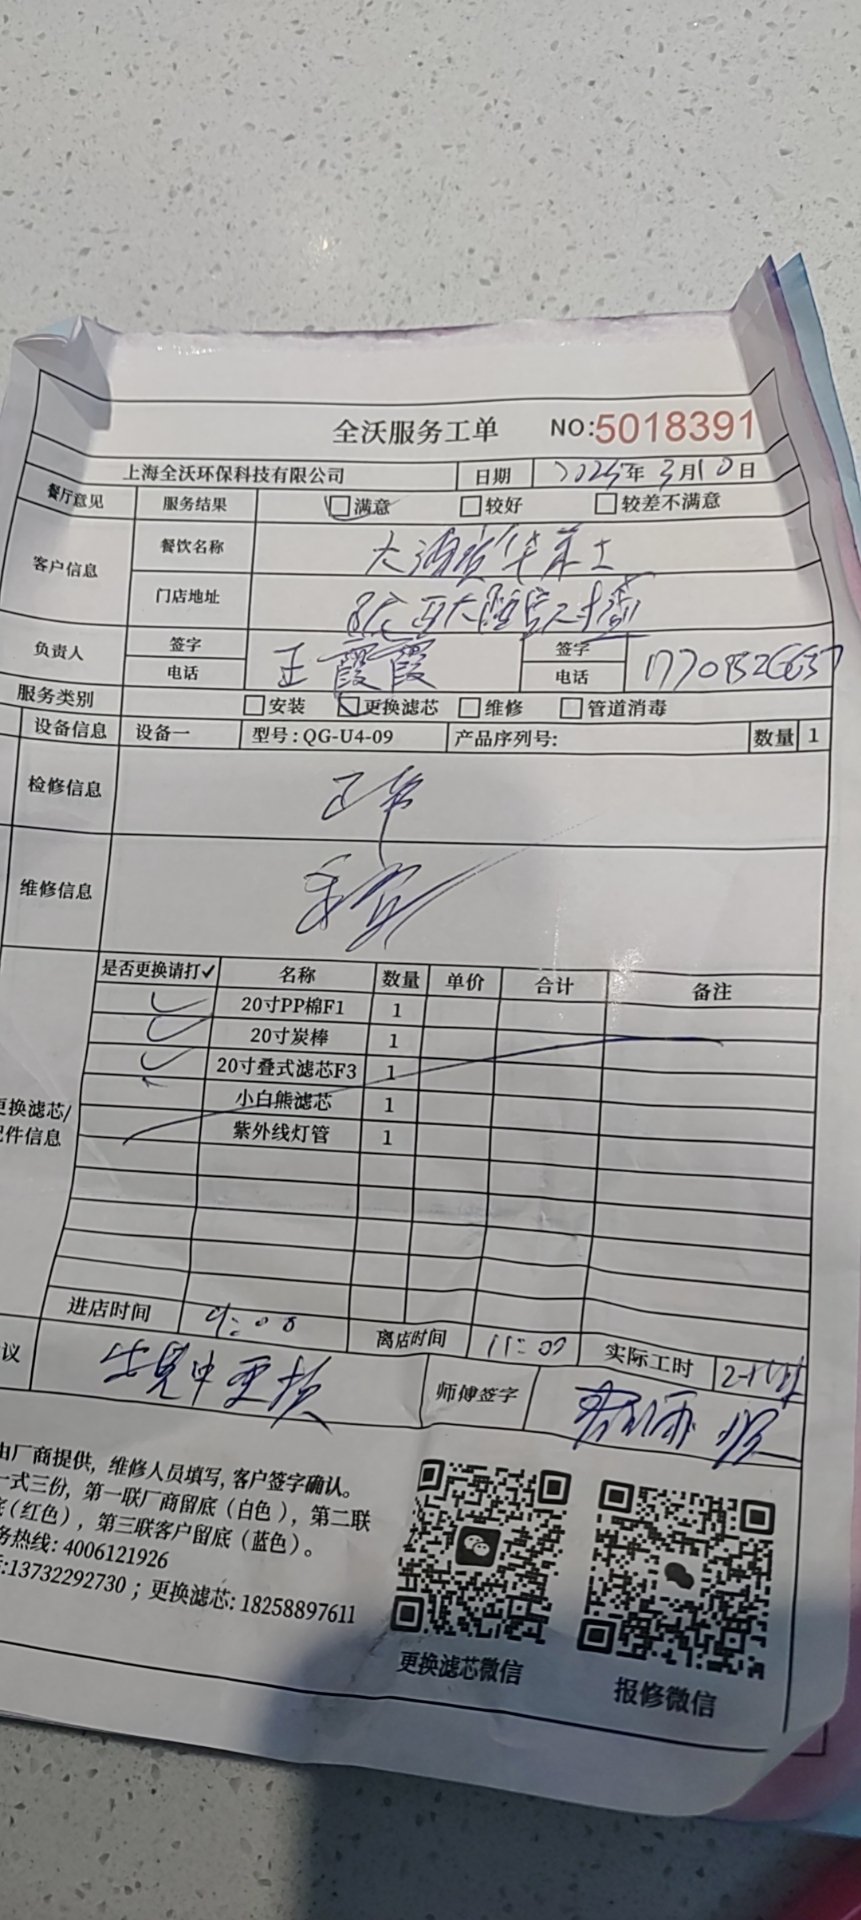 全沃服务工单 NO:5018391
上海全沃环保科技有限公司 日期 2025年3月10日
餐厅意见 服务结果 满意 较好 较差不满意
客户信息 餐饮名称
门店地址
负责人 签字 王霞霞 签字
电话 电话
服务类别 安装 更换滤芯 维修 管道消毒
设备信息 设备一 型号:QG-U4-09 产品序列号: 数量 1
检修信息 正常
维修信息
是否更换请打✓ 名称 数量 单价 合计 备注
20寸PP棉F1 1
20寸炭棒 1
20寸叠式滤芯F3 1
小白熊滤芯 1
紫外线灯管 1
更换滤芯/
配件信息
进店时间 9:00 离店时间 11:00 实际工时
议 师傅签字
由厂商提供, 维修人员填写, 客户签字确认。
一式三份, 第一联厂商留底 (白色), 第二联
底 (红色), 第三联客户留底 (蓝色)。
务热线: 4006121926
:13732292730 ; 更换滤芯: 18258897611
更换滤芯微信
报修微信